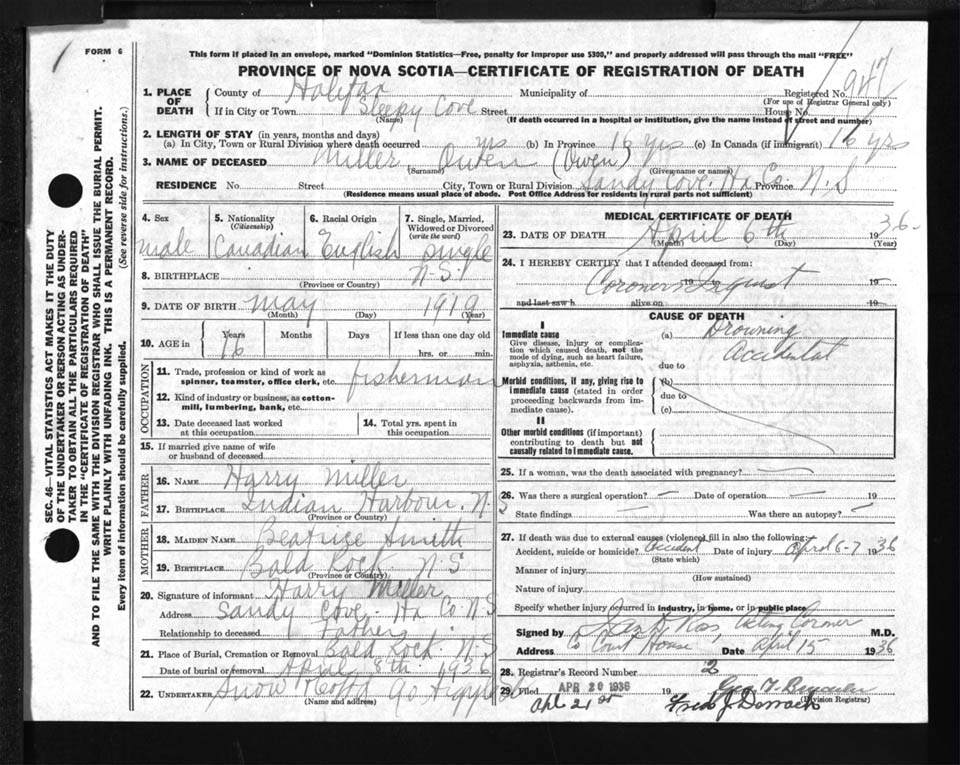 FORM 6
This form if placed in an envelope, marked "Dominion Statistics—Free, penalty for improper use $300," and properly addressed will pass through the mail "FREE"
PROVINCE OF NOVA SCOTIA—CERTIFICATE OF REGISTRATION OF DEATH
SEC. 46—VITAL STATISTICS ACT MAKES IT THE DUTY
OF THE UNDERTAKER OR PERSON ACTING AS UNDER-
TAKER TO OBTAIN ALL THE PARTICULARS REQUIRED
IN THE "CERTIFICATE OF REGISTRATION OF DEATH"
AND TO FILE THE SAME WITH THE DIVISION REGISTRAR WHO SHALL ISSUE THE BURIAL PERMIT.
WRITE PLAINLY WITH UNFADING INK. THIS IS A PERMANENT RECORD.
Every item of information should be carefully supplied. (See reverse side for instructions.)
1. PLACE OF DEATH County of Halifax Municipality of Registered No. 947
(For use of Registrar General only)
If in City or Town Sleepy Cove Street House No.
(Name) (If death occurred in a hospital or institution, give the name instead of street and number)
2. LENGTH OF STAY (in years, months and days)
(a) In City, Town or Rural Division where death occurred yrs (b) In Province 16 yrs (c) In Canada (if immigrant) 16 yrs
3. NAME OF DECEASED Miller Owen (Owen)
(Surname) (Given name or names)
RESIDENCE No. Street City, Town or Rural Division Sandy Cove. Hx Co. Province N.S
(Residence means usual place of abode. Post Office Address for residents in rural parts not sufficient)
4. Sex male
5. Nationality (Citizenship) Canadian
6. Racial Origin English
7. Single, Married, Widowed or Divorced (write the word) single
8. BIRTHPLACE N.S.
(Province or Country)
9. DATE OF BIRTH May 1919
(Month) (Day) (Year)
10. AGE in Years 16 Months Days If less than one day old hrs. or min.
OCCUPATION
11. Trade, profession or kind of work as spinner, teamster, office clerk, etc. fisherman
12. Kind of industry or business, as cotton-mill, lumbering, bank, etc.
13. Date deceased last worked at this occupation
14. Total yrs. spent in this occupation
15. If married give name of wife or husband of deceased
FATHER
16. NAME Harry Miller
17. BIRTHPLACE Indian Harbour, N.S
(Province or Country)
MOTHER
18. MAIDEN NAME Beatrice Smith
19. BIRTHPLACE Bald Rock N S
(Province or Country)
20. Signature of informant Harry Miller
Address Sandy Cove. Hx Co N.S
Relationship to deceased Father
21. Place of Burial, Cremation or Removal Bald Rock. N.S
Date of burial or removal April 8th 1936
22. UNDERTAKER Snow
(Name and address)
MEDICAL CERTIFICATE OF DEATH
23. DATE OF DEATH April 6th 1936
(Month) (Day) (Year)
24. I HEREBY CERTIFY that I attended deceased from:
Coroners Inquest 19 19
and last saw h alive on 19
CAUSE OF DEATH
I
Immediate cause
Give disease, injury or complication which caused death, not the mode of dying, such as heart failure, asphyxia, asthenia, etc.
(a) Drowning
Accidental
due to
Morbid conditions, if any, giving rise to immediate cause (stated in order proceeding backwards from immediate cause).
(b)
due to
(c)
II
Other morbid conditions (if important) contributing to death but not causally related to immediate cause.
25. If a woman, was the death associated with pregnancy? —
26. Was there a surgical operation? — Date of operation — 19
State findings — Was there an autopsy? —
27. If death was due to external causes (violence) fill in also the following:
Accident, suicide or homicide? Accident Date of injury April 6-7 1936
(State which)
Manner of injury
(How sustained)
Nature of injury
Specify whether injury occurred in industry, in home, or in public place
Signed by Acting Coroner M.D.
Address Court House Date April 15 1936
28. Registrar's Record Number 2
29. Filed APR 20 1936 19
(Division Registrar)
21st Fred J